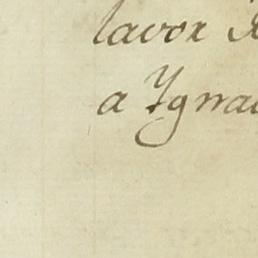 lavor
a Ygna